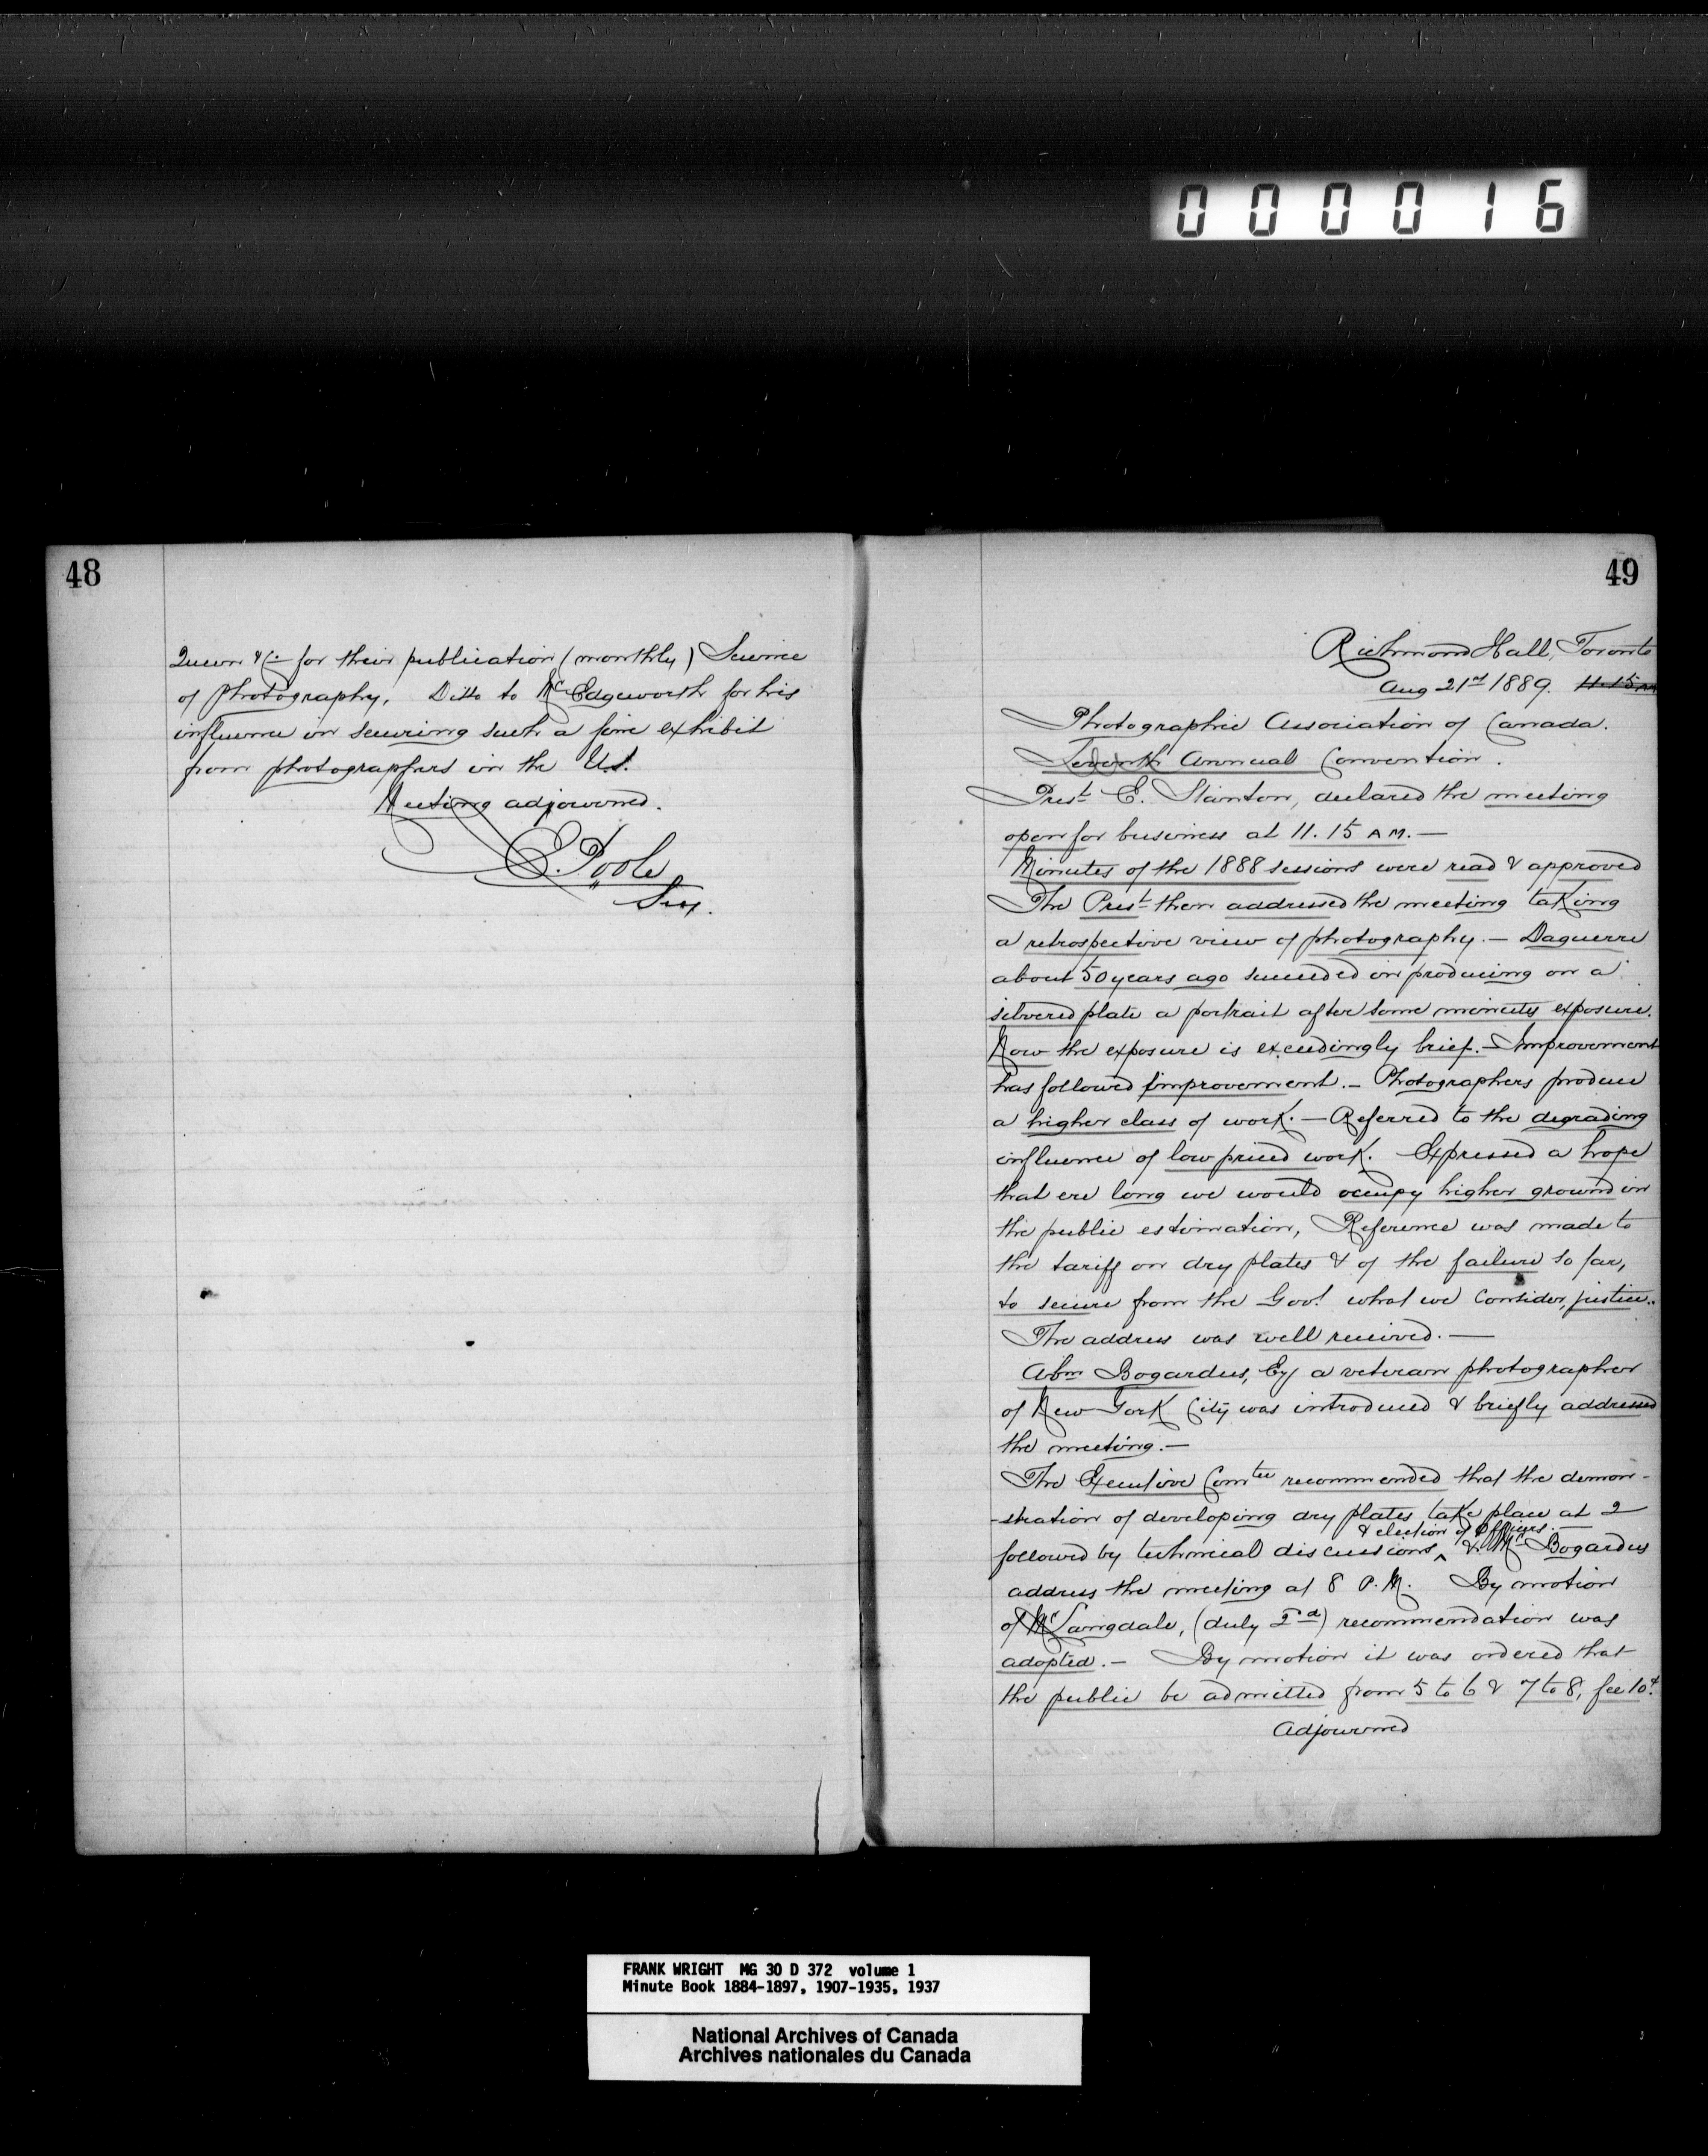 000016
48
Queen & Co for their publication (monthly) Science
of Photography. Ditto to Mr Edgeworth for his
influence in securing such a fine exhibit
from photographers in the U.S.
Meeting adjourned.
E. Poole
Secy.
49
Richmond Hall, Toronto
Aug 21st 1889. 11.15 AM
Photographic Association of Canada.
Annual Convention.
Prest E. Stanton, declared the meeting
open for business at 11.15 AM.—
Minutes of the 1888 sessions were read & approved
The Prest then addressed the meeting taking
a retrospective view of photography.— Daguerre
about 50 years ago succeeded in producing on a
silvered plate a portrait after some minutes exposure.
Now the exposure is exceedingly brief.— Improvement
has followed improvement.— Photographers produce
a higher class of work.— Referred to the degrading
influence of low priced work. Expressed a hope
that ere long we would occupy higher ground in
the public estimation, Reference was made to
the tariff on dry plates & of the failure so far,
to secure from the Govt what we consider, justice.
The address was well received.—
Abm Bogardus, Esq a veteran photographer
of New York City was introduced & briefly addressed
the meeting.—
The Executive Comtee recommended that the demon-
-stration of developing dry plates take place at 2
& election of Officers.
followed by technical discussions ^ & Mr Bogardus
address the meeting at 8 P.M. By motion
of Mr Langdale, (duly 2nd) recommendation was
adopted.— By motion it was ordered that
the public be admitted from 5 to 6 & 7 to 8, fee 10¢
Adjourned
FRANK WRIGHT MG 30 D 372 volume 1
Minute Book 1884-1897, 1907-1935, 1937
National Archives of Canada
Archives nationales du Canada